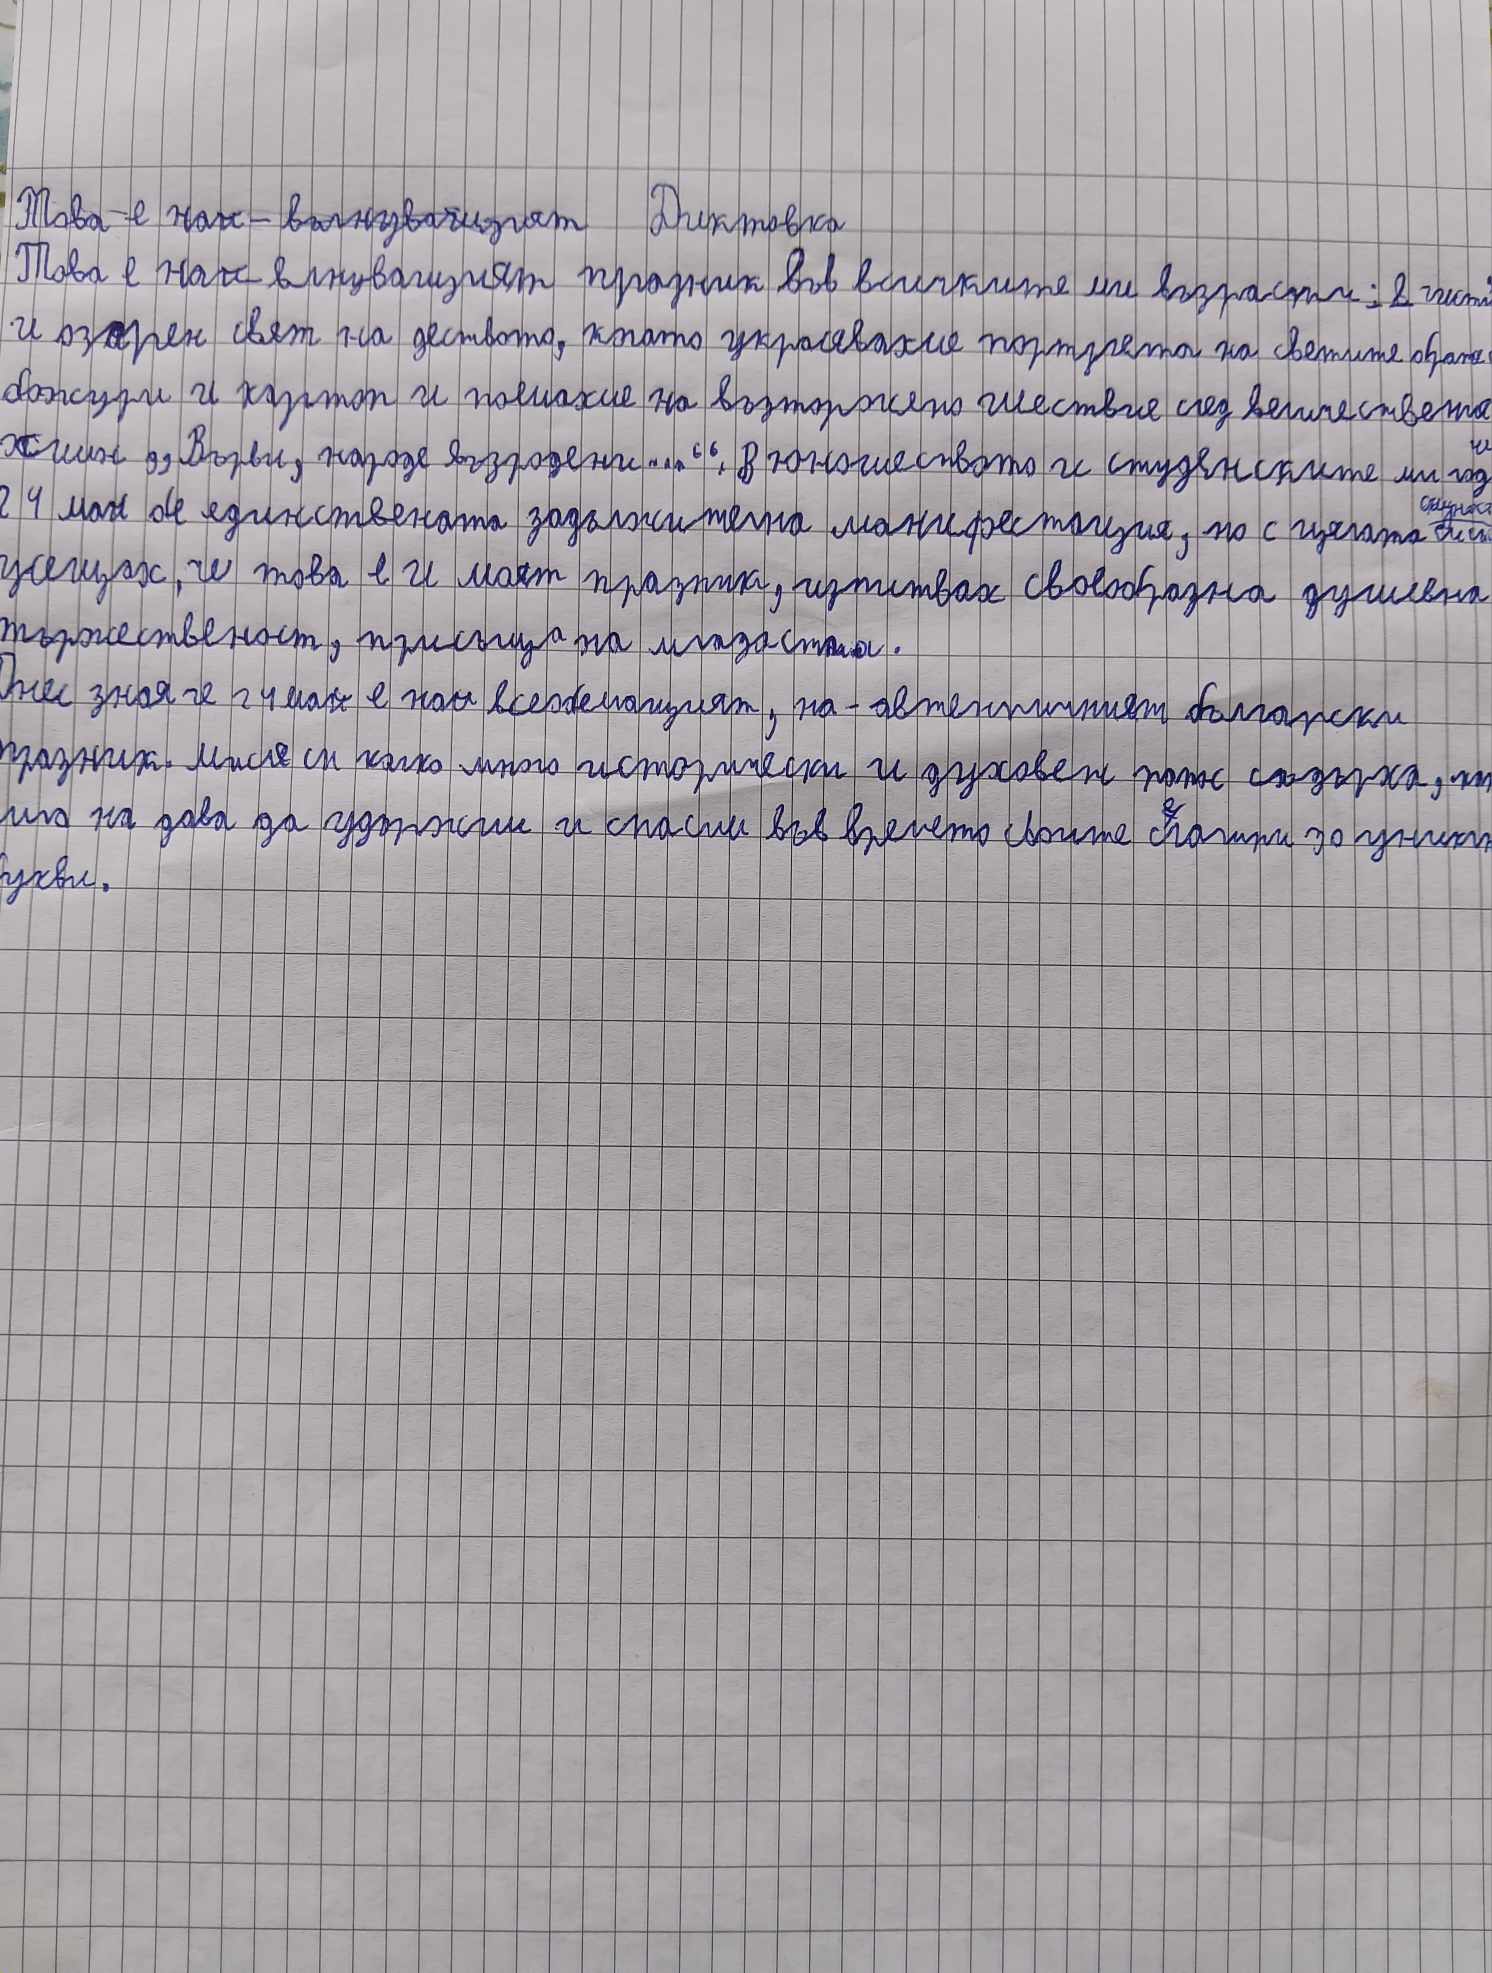 Това е най-вълнуващият Диктовка
Това е най-влнуващият празник във всичките ми възрасти: В чист
и озарен свят на деството, когато украсявахме портрета на светите братя
божури и картон и поемахме на възторжено шествие след величествения
химн „Върви, народе възродени....“. В юношеството и студенските ми год
24 май бе единствената задължителна манифестация, но с цялата
усещах, че това е и моят празник, изпитвах своеобразна душевна
тържественост, присъща на младостта.
Днес зная че 24 май е най всеобемащият, на-автентичният български
празник. Мисля си колко много исторически и духовен потк съдърка,
що на дава да удържим и спасим във времето своите си за уники
букви.